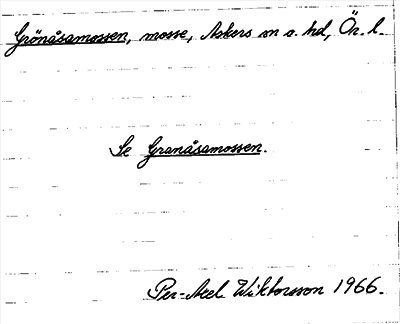 Grönåsamossen, mosse, Askers sn o. hd, Ör. l.
Se Granåsamossen.
Per-Axel Wiktorsson 1966.